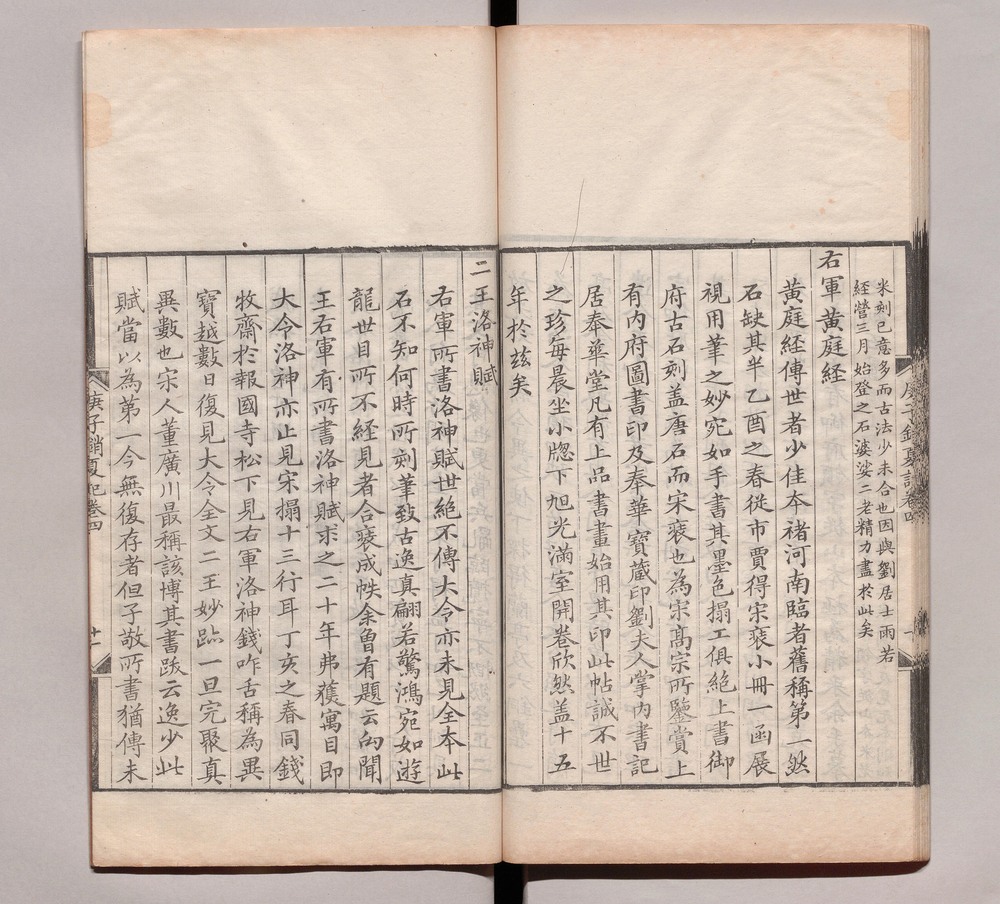 庚子銷夏記卷四
十
求刻已意多而古法少未合也因與劉居士雨若
經營三月始登之石婆娑二老精力盡於此矣
右軍黃庭經
黃庭經傳世者少佳本褚河南臨者舊稱第一然
石缺其半乙酉之春從市賈得宋裱小冊一函展
視用筆之妙宛如手書其墨色搨工俱絕上書御
府古石刻盖唐石而宋裱也為宋高宗所鑒賞上
有內府圖書印及奉華寶藏印劉夫人掌內書記
居奉華堂凡有上品書畫始用其印此帖誠不世
之珍每晨坐小牕下旭光滿室開卷欣然盖十五
年於玆矣
二王洛神賦
右軍所書洛神賦世絕不傳大令亦未見全本此
石不知何時所刻筆致古逸真翩若驚鴻宛如遊
龍世目所不經見者合裱成帙余曾有題云向聞
王右軍有所書洛神賦求之二十年弗獲寓目即
大令洛神亦止見宋搨十三行耳丁亥之春同錢
牧齋於報國寺松下見右軍洛神錢咋舌稱為異
寶越數日復見大令全文二王妙跡一旦完聚真
異數也宋人董廣川最稱該博其書跋云逸少此
賦當以為第一今無復存者但子敬所書猶傳未
庚子銷夏記卷四
十一